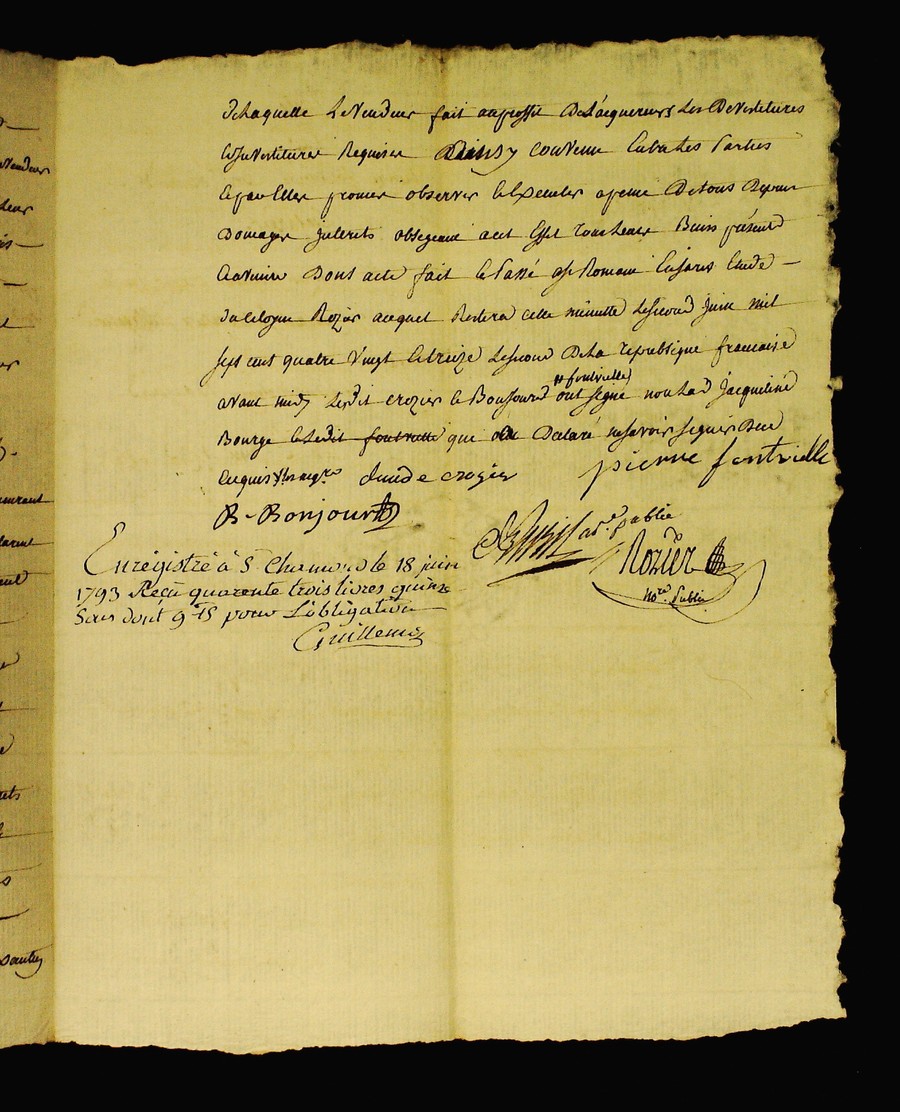 de Laquelle Le Vendeur fait au proffit de L'acquereur Les Devestitures
et Investitures Requises Ainsy convenu Entre Les Parties
et par Elles promis observer et Executer a peine De tous Depens
Domages Interets obligeant a cet Effet tous Leurs Biens présent
et avenir Dont acte fait et Passé a St Romain En Jarets Etude
du citoyen Rozier auquel Restera cette minutte Le second juin mil
sept cent quatre Vingt et treize Le second De La republique francaise
avant midy Lesdit crozier et Bonjourd # fontvielle ont signé non Lad Jacqueline
Bourge et Ledit fontvielle que a Declaré ne savoir signer De ce
Enquis claude crozier pierre fontvielle
B-Bonjourd
no.re public
Rozier
no.re Public
Enregistré à St Chamond le 18 juin
1793 Reçu quarente trois livres quinze
Sous dont 9 15 pour L'obligation
Guillemin